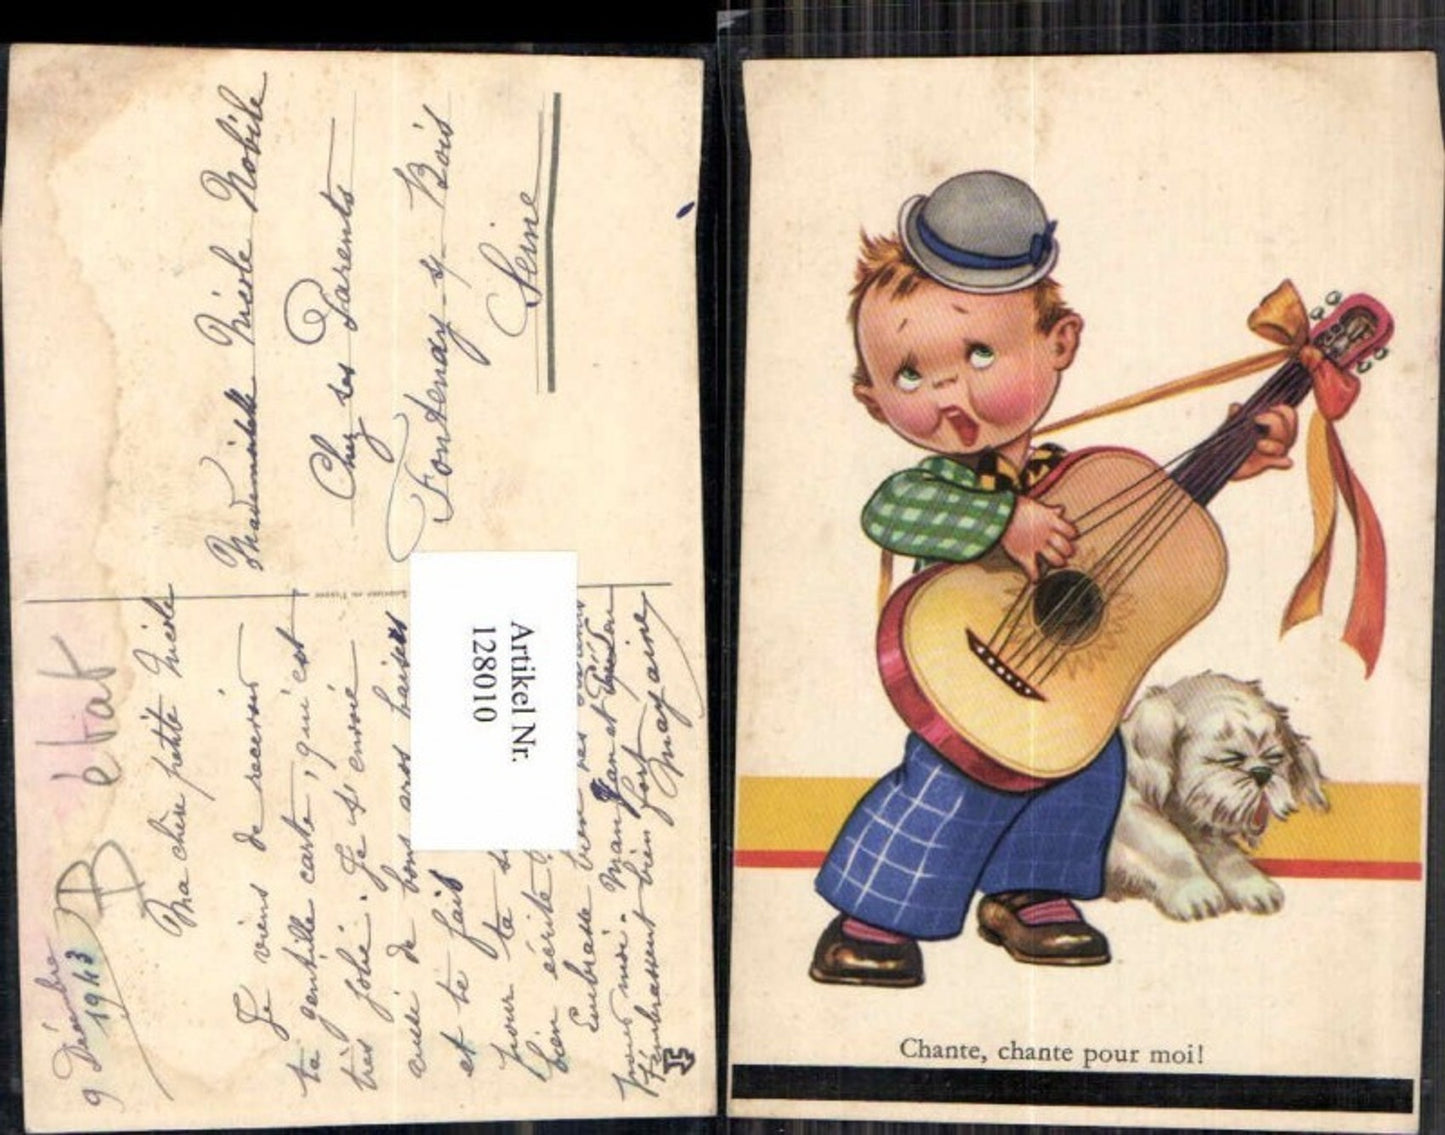 Mademoiselle Nicole Nobile
Chez ses Parents
Fontenay-s/ Bois
Seine
B état
9 Décembre
1943
Ma chère petite Nicole
Je viens de recevoir
ta gentille carte, qui est
très jolie. Je t'envoie
aussi de bons gros baisers
et te fais
pour ta
bien écrite
Embrasse bien
pour moi. Maman et
t'embrassent bien fort
Artikel Nr.
128010
Chante, chante pour moi!